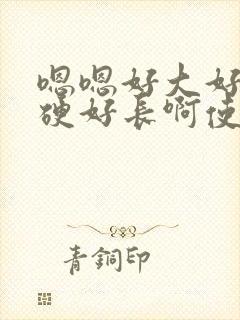 嗯嗯好大好
硬好长啊使
青銅印